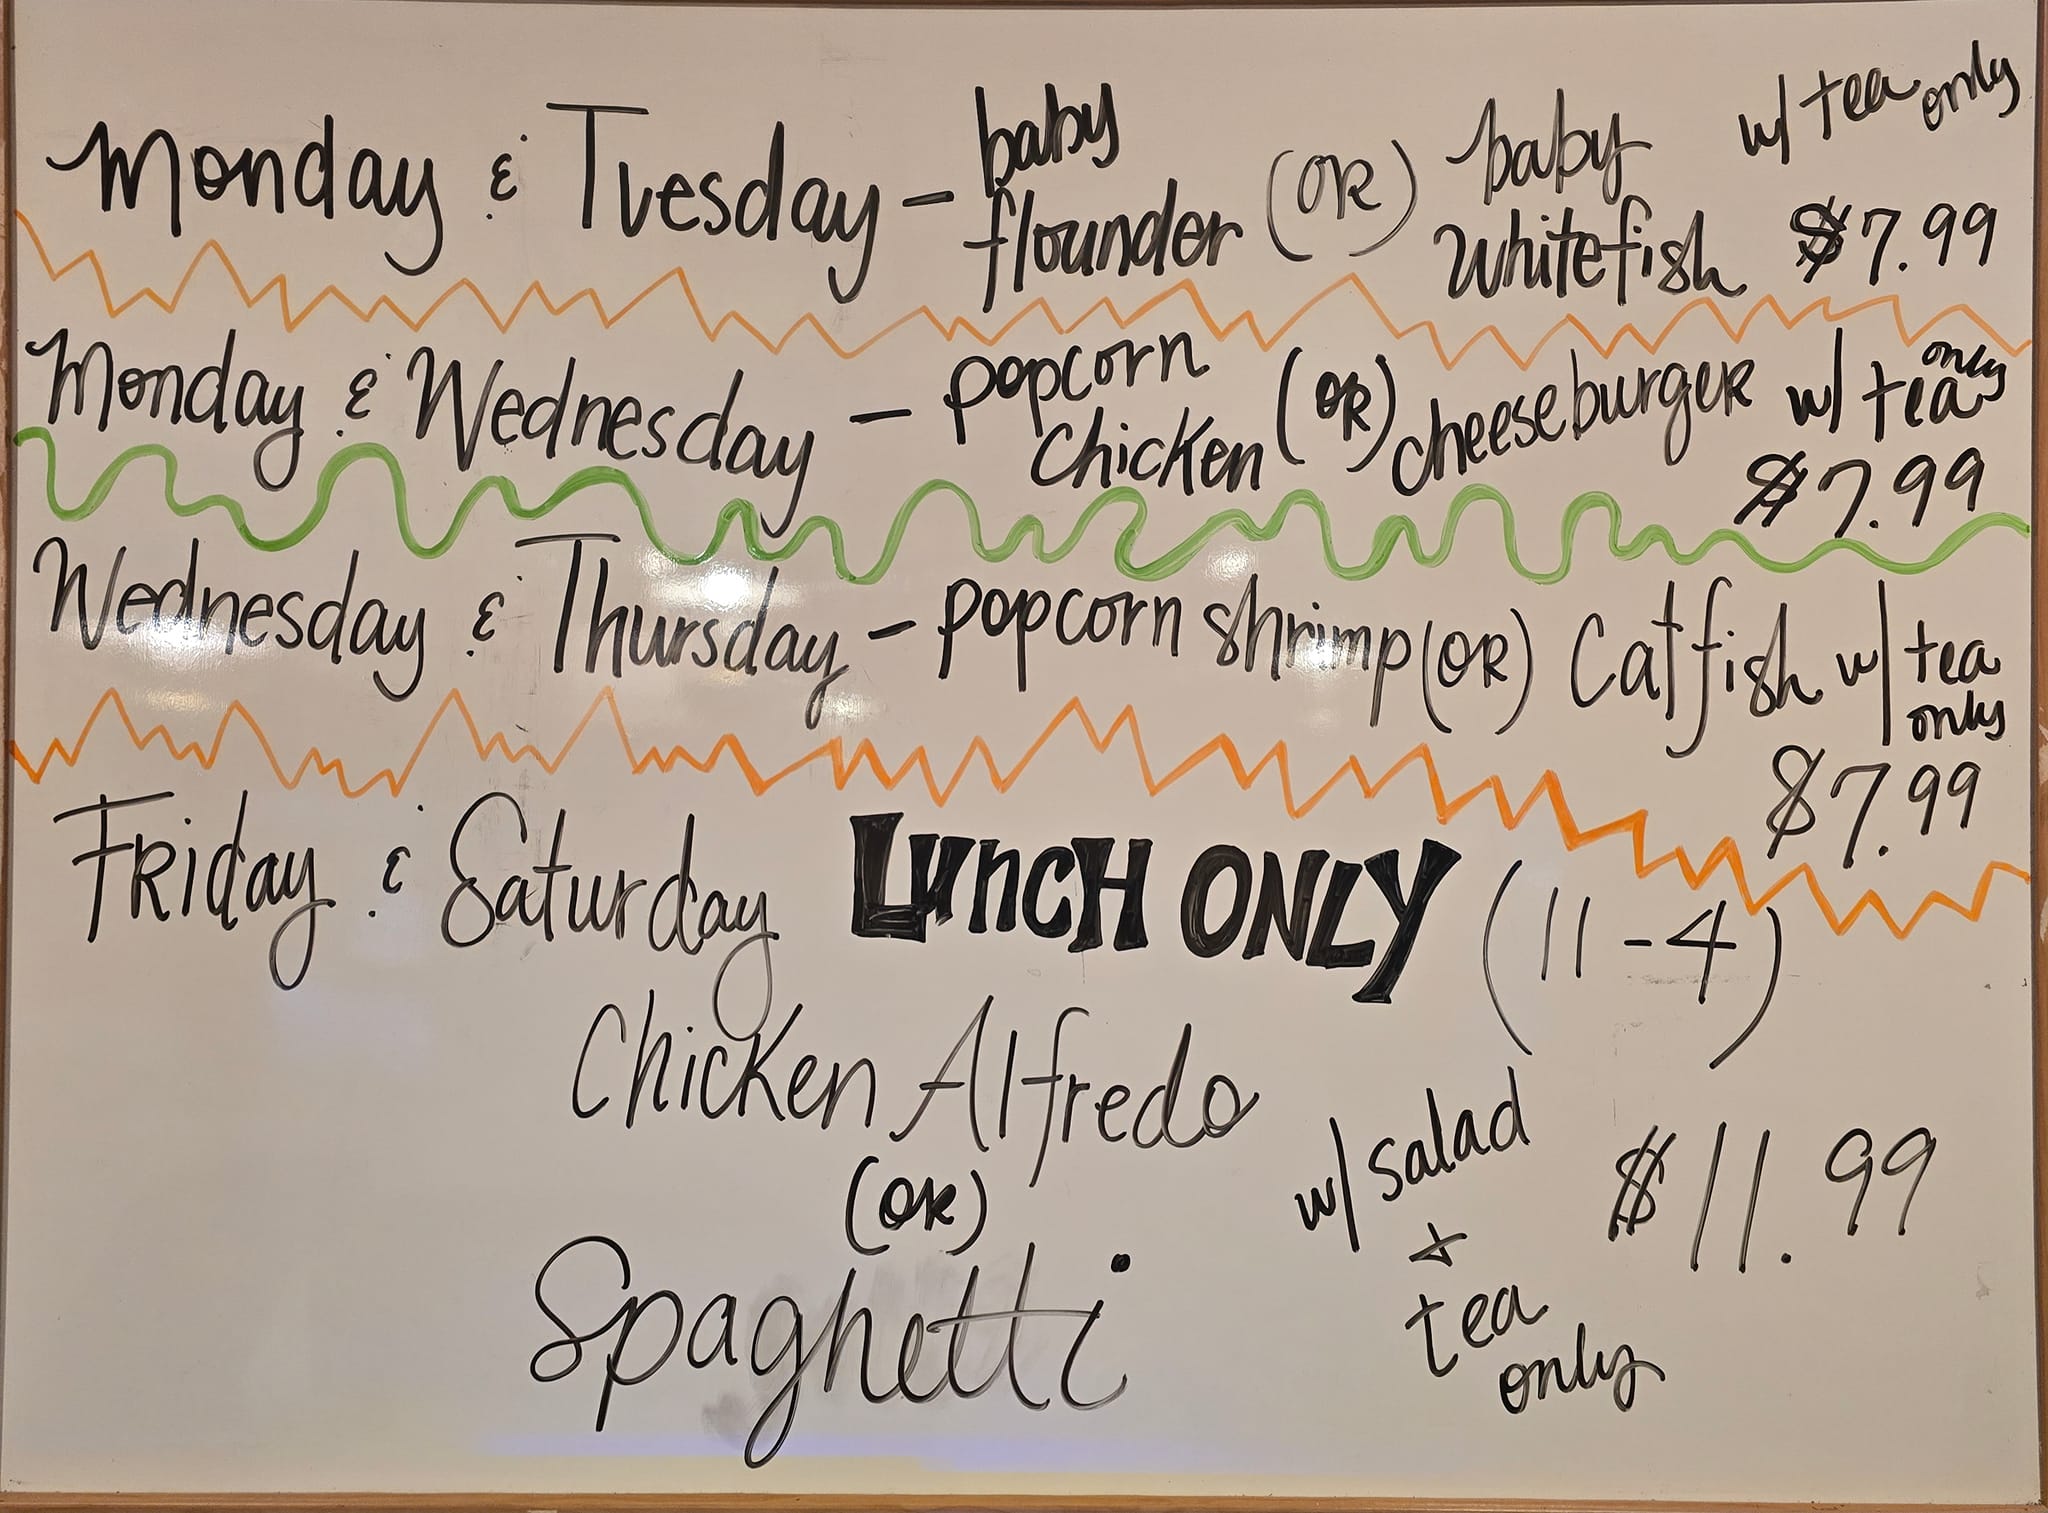 Monday & Tuesday - baby flounder (OR) baby whitefish w/ tea only $7.99
Monday & Wednesday - popcorn chicken (OR) cheeseburger w/ tea only $7.99
Wednesday & Thursday - popcorn shrimp (OR) Catfish w/ tea only $7.99
Friday & Saturday LuncH ONLY (11-4)
Chicken Alfredo
(OR)
Spaghetti
w/ salad + tea only $11.99